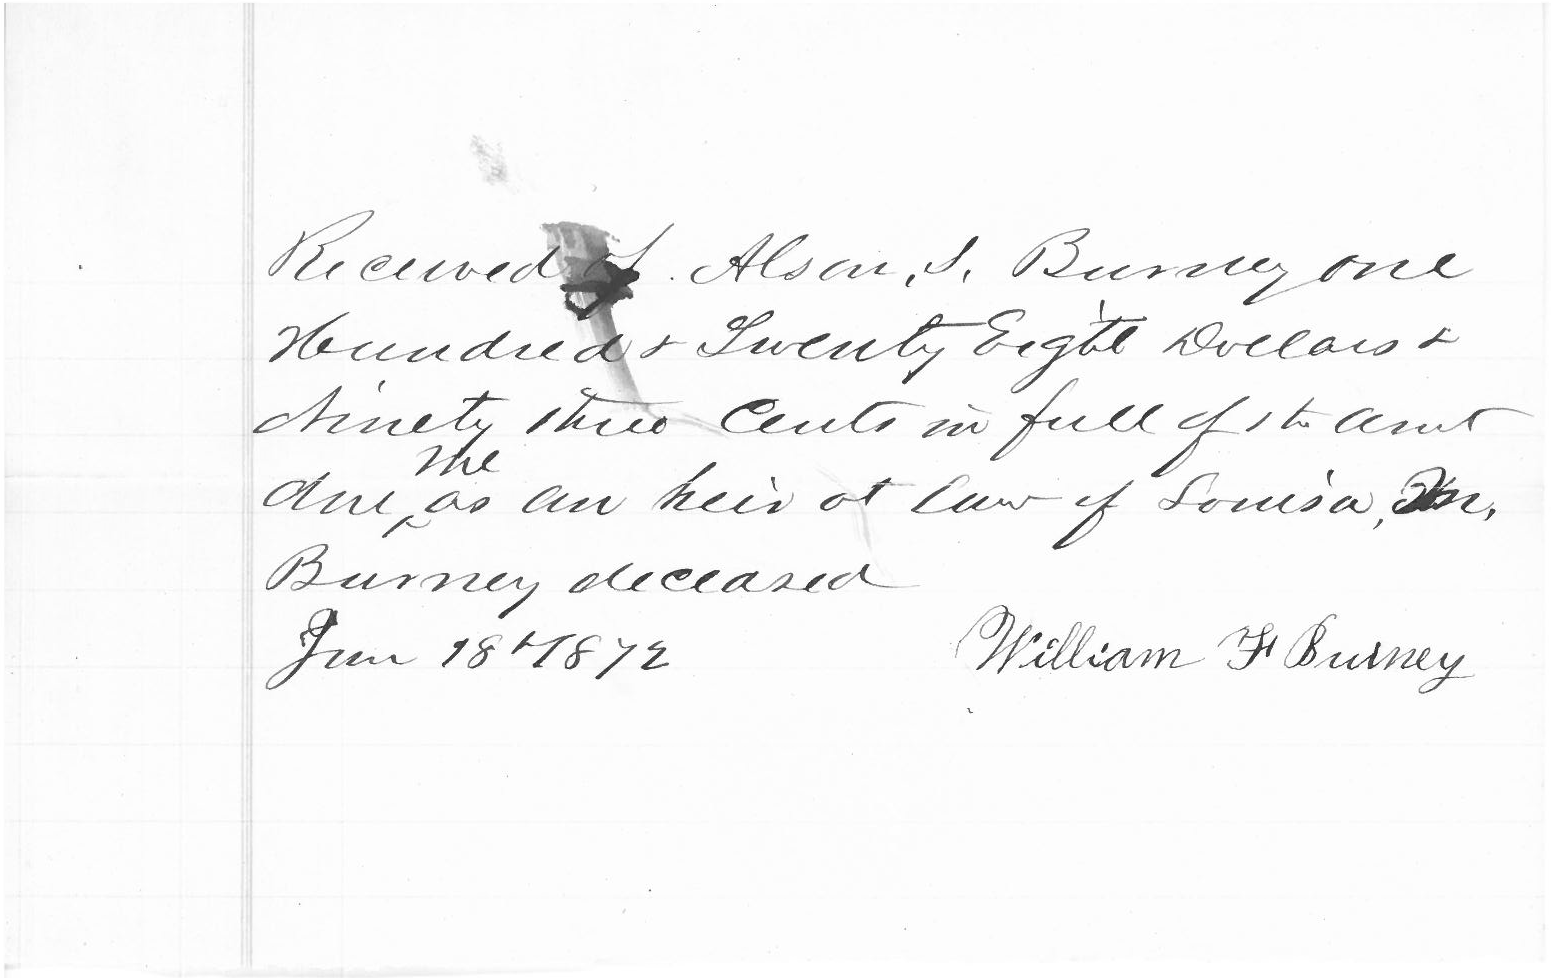 Received of Alson, S, Burney one
Hundred & Twenty Eight Dollars &
Ninety three Cents in full of the amt
due me as an heir at law of Louisa, M,
Burney deceased
Jun 18th 1872 William F Burney